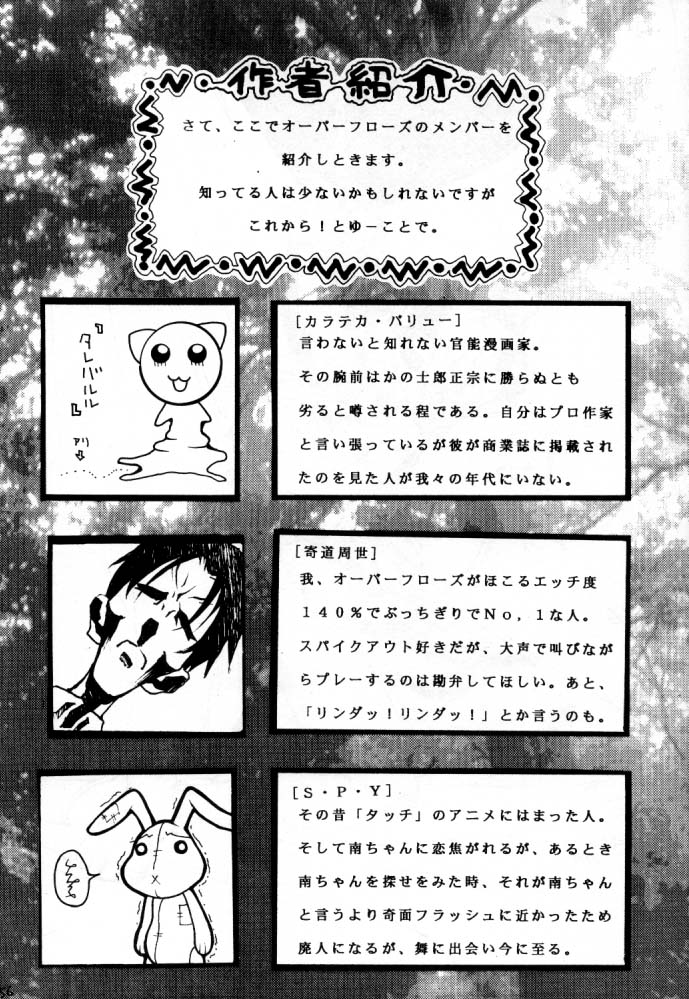 作者紹介
さて、ここでオーバーフローズのメンバーを
紹介しときます。
知ってる人は少ないかもしれないですが
これから！とゆーことで。
『タレバルル』
アリ
[カラテカ・バリュー]
言わないと知れない官能漫画家。
その腕前はかの士郎正宗に勝らぬとも
劣ると噂される程である。自分はプロ作家
と言い張っているが彼が商業誌に掲載され
たのを見た人が我々の年代にいない。
[寄道周世]
我、オーバーフローズがほこるエッチ度
１４０％でぶっちぎりでＮｏ，１な人。
スパイクアウト好きだが、大声で叫びなが
らプレーするのは勘弁してほしい。あと、
「リンダッ！リンダッ！」とか言うのも。
[Ｓ・Ｐ・Ｙ]
その昔「タッチ」のアニメにはまった人。
そして南ちゃんに恋焦がれるが、あるとき
南ちゃんを探せをみた時、それが南ちゃん
と言うより奇面フラッシュに近かったため
廃人になるが、舞に出会い今に至る。
56